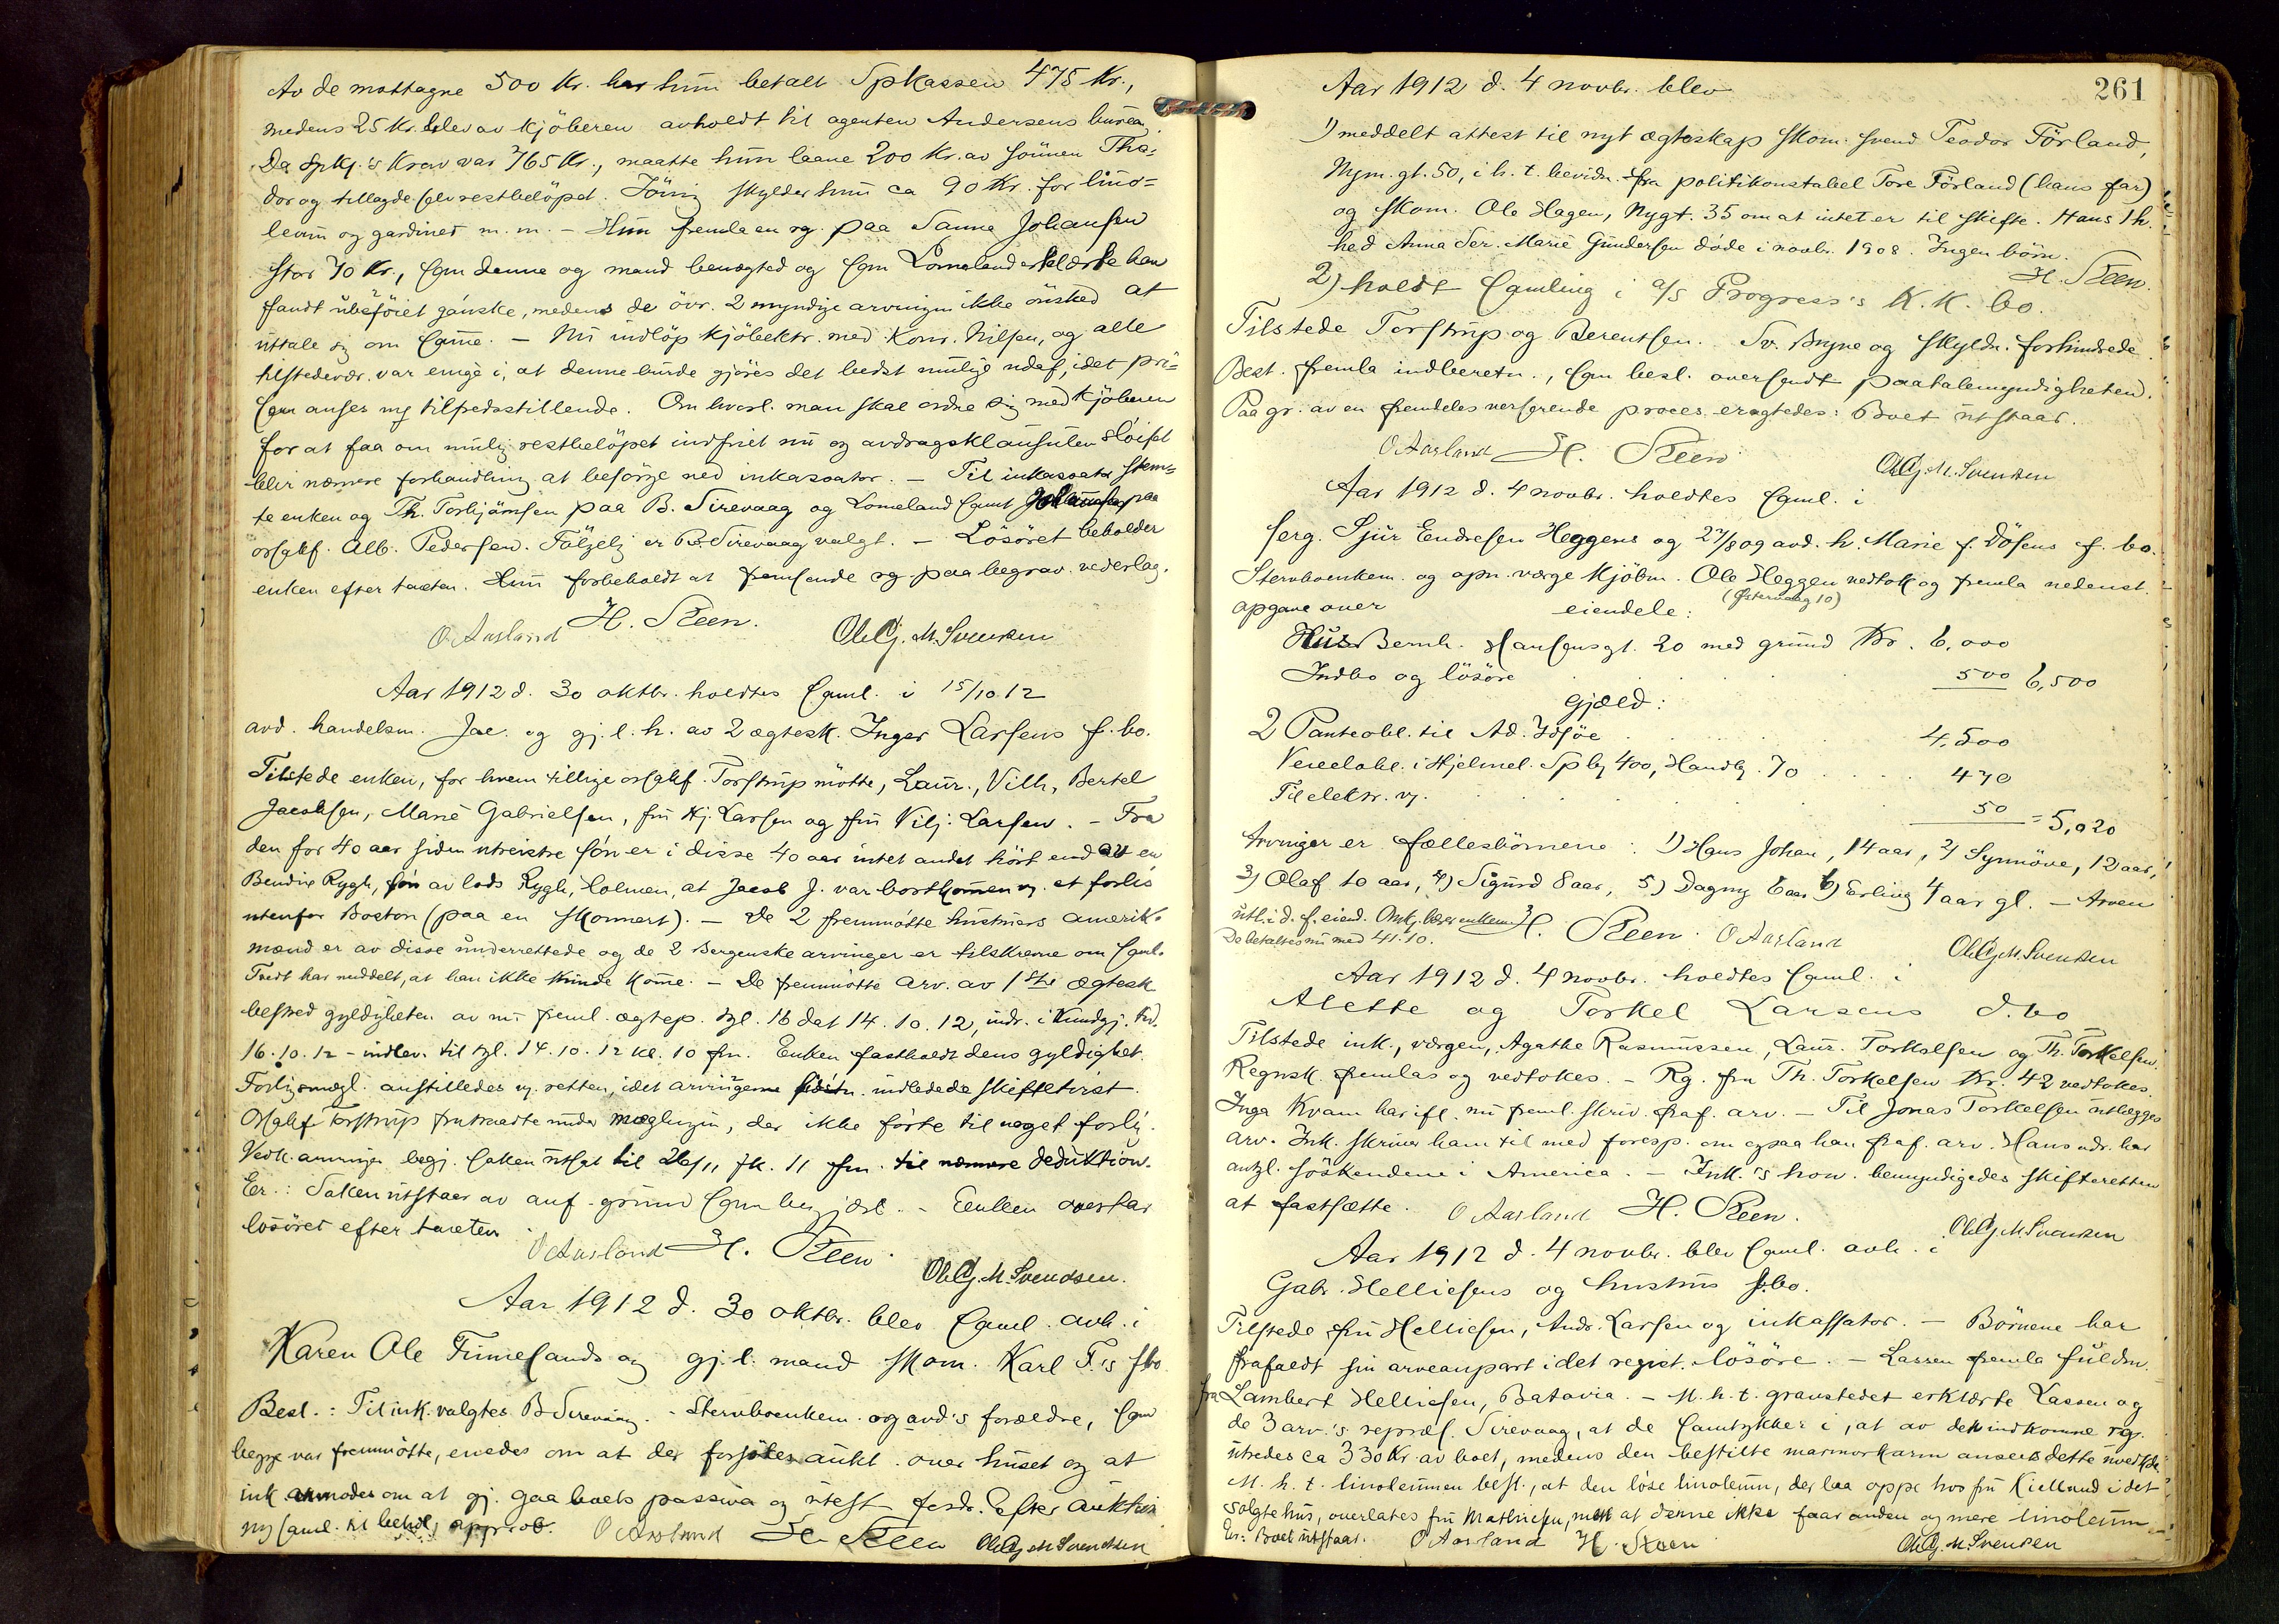 Av de mottagne 500 Kr. har hun betalt Spkassen 475 Kr.,
medens 25 Kr. blev av kjøberen avholdt til agenten Andersens bureau.
Da Spkj.'s Krav var 765 Kr., maatte hun laane 200 Kr. av sønnen Thо-
dor og tillagde selv restbeløpet. skylder hun ca 90 Kr. for lino-
leum og gardiner m. m. - Hun fremla en rg. paa Sanna Johansen
stor 70 Kr., som denne og mand benegted og som Lomeland erklærte han
fandt ubeføiet ganske, medens de övr. 2 myndige arvinger ikke ønsked at
uttale sig om samme. - Nu indløp kjøbektr. med Konr. Nilsen, og alle
tilstedevær. var enige i, at denne burde gjøres det bedst mulige utaf, idet pri-
sen anses ung tilfredsstillende. Om hvorl. man skal ordne sig med kjøberen
for at faa om mulig restbeløpet indfriet nu og avdragsklausulen sløifet
blir nærmere forhandling at besørge ved inkassator. - Til inkassator stem-
te enken og Th. Torbjørnsen paa B. Sirevaag og Lomeland samt Johannesen paa
orsakf. Alb. Pedersen. Følgelig er B. Sirevaag valgt. - Løsøret beholder
enken efter taxten. Hun forbeholdt at fremsende rg. paa begrav. vederlag.
O Aasland H. Steen. Ole G. M. Svendsen
Aar 1912 d. 30 oktbr. holdtes saml. i 15/10 12
avd. handelsm. Jac. og gj. l. h. av 2 ægtesk. Inger Larsens f. bo.
Tilstede enken, for hvem tillige orsakf. Torstrup møtte, Laur., Vilh., Bertel
Jacobsen, Marie Gabrielsen, fru Hj. Larsen og fru Vilj. Larsen. - Fra
den for 40 aar siden utreiste søn er i disse 40 aar intet andet hørt end av en
Bendix Rygh, søn av lods Rygh, holmen, at Jacob J. var bortkommen v. et forlis
utenfor Boston (paa en skonnert). - De 2 fremmøtte hustruers amerik.
mænd er av disse underrettede og de 2 Bergenske arvinger er tilskrevne om saml.
Tvedt har meddelt, at han ikke kunde komme. - De fremmøtte arv. av 1ste ægtesk.
bestred gyldigheten av nu freml. ægtep. tgl. 16 dat 14.10.12, indr. i Kundgj. tid.
16.10.12 - indlev. til tgl. 14.10.12 kl. 10 fm. Enken fastholdt dens gyldighet.
Forligsmægl. anstilledes v. retten, idet arvingerne indledede skiftetvist.
Orsakf Torstrup fratraadte under mæglingen, der ikke førte til noget forlig.
Vedk. arvinger begj. saken utsat til 26/11 fk. 11 fm. til nærmere deduktion.
Er.: Saken utstaar av anf. grund som begjært. - Enken overtar
løsøret efter taxten.
O Aasland H. Steen. Ole G. M. Svendsen.
Aar 1912 d. 30 oktbr. blev saml. avh. i
Karen Ole Tunelands og gj. l. mand skom. Karl T.'s f bo.
Besl.: Til ink. valgtes B Sirevaag. - Stervboenkem. og avd's forældre, som
begge var fremmøtte, enedes om at der forsøkes aukt. over huset og at
ink anmodes om at gj. gaa boets passiva og utest. fordr. Efter auktion
ny saml. til beholdg approb. O Aasland H. Steen Ole G. M Svendsen
261
Aar 1912 d. 4 novbr. blev
1) meddelt attest til nyt ægteskap skom. svend Teodor Förland,
Nym. gt. 50, i h. t. bevidn. fra politikonstabel Tore Förland (hans far)
og skom. Ole Hagen, Nygt. 35 om at intet er til skifte. Hans 1 h.
hed Anna Ser. Marie Gundersen døde i novbr. 1908. Ingen börn.
H. Steen.
2) holdt samling i a/s Progress's K. K. bo.
Tilstede Torstrup og Berentsen. Sv. Bryne og skyldn. forhindrede.
Best. fremla indberetn., som besl. oversendt paatalemyndigheten.
Paa gr. av en fremdeles verserende proces eragtedes: Boet utstaar.
O Aasland H. Steen Ole G. M. Svendsen
Aar 1912 d. 4 novbr. holdtes saml. i
serg. Sjur Endresen Heggens og 27/8 09 avd. h. Marie f. Døsens f. bo.
Stervboenkem. og opn. værge kjøbm. Ole Heggen vedtok og fremla nedenst.
(Østervaag 10)
opgave over eiendele:
Hus Bernh. Hansensgt. 20 med grund Kr. 6,000
Indbo og løsøre 500 6,500
Gjæld:
2 Panteobl. til Ad. Idsøe 4,500
Vexelobl. i Hjelmel. Spbg 400, Handbg. 70 470
Til elektr. v. 50 = 5,020
Arvinger er fællesbörnene: 1) Hans Johan, 14 aar, 2) Synnöve, 12 aar,
3) Olaf 10 aar, 4) Sigurd 8 aar, 5) Dagny 6 aar 6) Erling 4 aar gl. - Arven
utl. i d. f. eiend. Omk. bærer enkem.
De betaltes nu med 41.10. H. Steen. O Aasland Ole G. M. Svendsen
Aar 1912 d. 4 novbr. holdtes saml. i
Alette og Torkel Larsens d. bo
Tilstede ink., værgen, Agathe Rasmussen, Laur. Torkelsen og Th. Torkelsen.
Regnsk. fremlas og vedtokes. - Rg. fra Th. Torkelsen Kr. 42 vedtokes.
Inga Kvam har ifl. nu freml. skriv. fraf. arv. - Til Jonas Torkelsen utlægges
arv. Ink. skriver ham til med foresp. om ogsaa han fraf. arv. Hans adr. har
antgl. söskendene i America. - Ink.'s hon. bemyndigedes skifteretten
at fastsætte. O Aasland H. Steen. Ole G. M. Svendsen
Aar 1912 d. 4 novbr. blev saml. avh. i
Gabr. Helliesens og hustrus f. bo.
Tilstede fru Helliesen, Andr. Larsen og inkassator. - Börnene har
frafaldt sin arveanpart i det regist. løsøre. - Larsen fremla fuldm.
fra Lambert Helliesen, Batavia. - M. h. t. gravstedet erklærte Larsen og
de 3 arv.'s repræs. Sirevaag, at de samtykker i, at av den indkomne rg.
utredes ca 330 Kr. av boet, medens den bestilte marmorkarm ansees dette uvedk.
M. h. t. linoleummen best., at den løse linoleum, der laa oppe hos fru Kielland i det
solgte hus, overlates fru Mathiesen, mot at denne ikke faar anden og mere linoleum.
Er.: Boet utstaar. O Aasland H. Steen Ole G. M. Svendsen